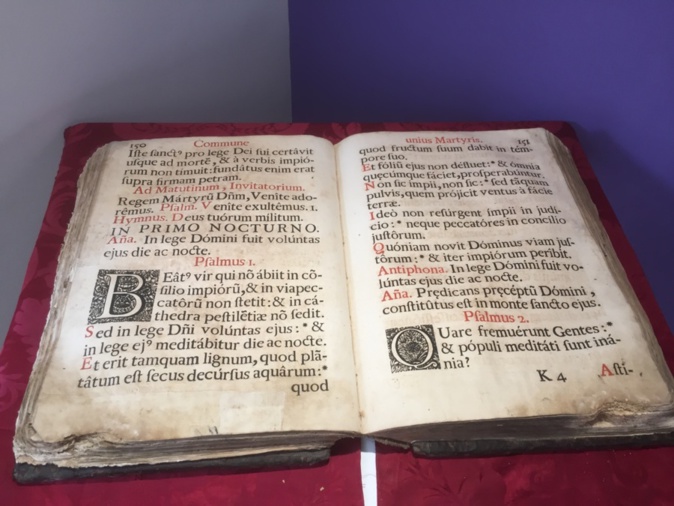 150 Commune
Iste sanctꝰ pro lege Dei sui certávit
usque ad mortē, & à verbis impió-
rum non timuit: fundátus enim erat
supra firmam petram.
Ad Matutinum, Invitatorium.
Regem Mártyrũ Dñm, Venite ado-
rémus. Psalm. Venite exultémus. 1.
Hymnus. Deus tuórum militum.
IN PRIMO NOCTURNO.
Aña. In lege Dómini fuit volúntas
ejus die ac nocte.
Psalmus 1.
BEátꝰ vir qui nõ ábiit in cõ-
silio impiórũ, & in via pec-
catórũ non stetit: & in cá-
thedra pestilétiæ nõ sedit.
Sed in lege Dñi volúntas ejus: * &
in lege ejꝰ meditábitur die ac nocte.
Et erit tamquam lignum, quod plã-
tátum est secus decúrsus aquârum: *
quod
unius Martyris. 151
quod fructum suum dabit in tém-
pore suo.
Et fóliũ ejus non défluet: * & ómnia
quęcúmque fáciet, prosperabúntur.
Non sic impii, non sic: * sed tãquam
pulvis, quem prójicit ventus à fácie
terræ.
Ideò non resúrgent impii in judí-
cio: * neque peccatóres in concilio
justôrum.
Quóniam novit Dóminus viam jus-
tórum: * & iter impiórum peribit.
Antiphona. In lege Dómini fuit vo-
lúntas ejus die ac nocte.
Aña. Prędicans pręcéptũ Dómini,
constitûtus est in monte sancto ejus.
Psalmus 2.
QUare fremuérunt Gentes: *
& pópuli meditáti sunt iná-
nia?
K 4 Asti-